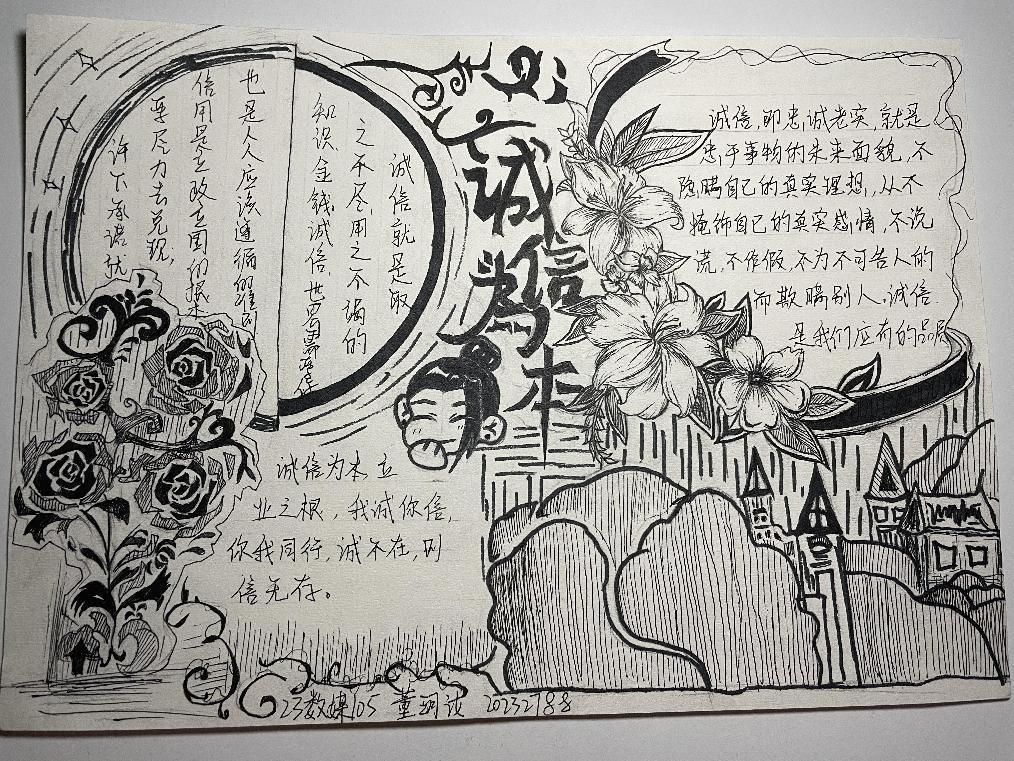 以
诚
信
为
本
许下承诺就
要尽力去兑现，
信用是立政立国的根
也是人人应该遵循的准则
诚信就是取
之不尽，用之不竭的
知识金钱诚信，也
诚信，即忠诚老实，就是
忠于事物的未来面貌，不
隐瞒自己的真实理想，从不
掩饰自己的真实感情，不说
谎，不作假，不为不可告人的
而欺瞒别人。诚信
是我们应有的品
诚信为本，立
业之根，我诚你信，
你我同行，诚不在，则
信无存。
23数媒105 董 20232188